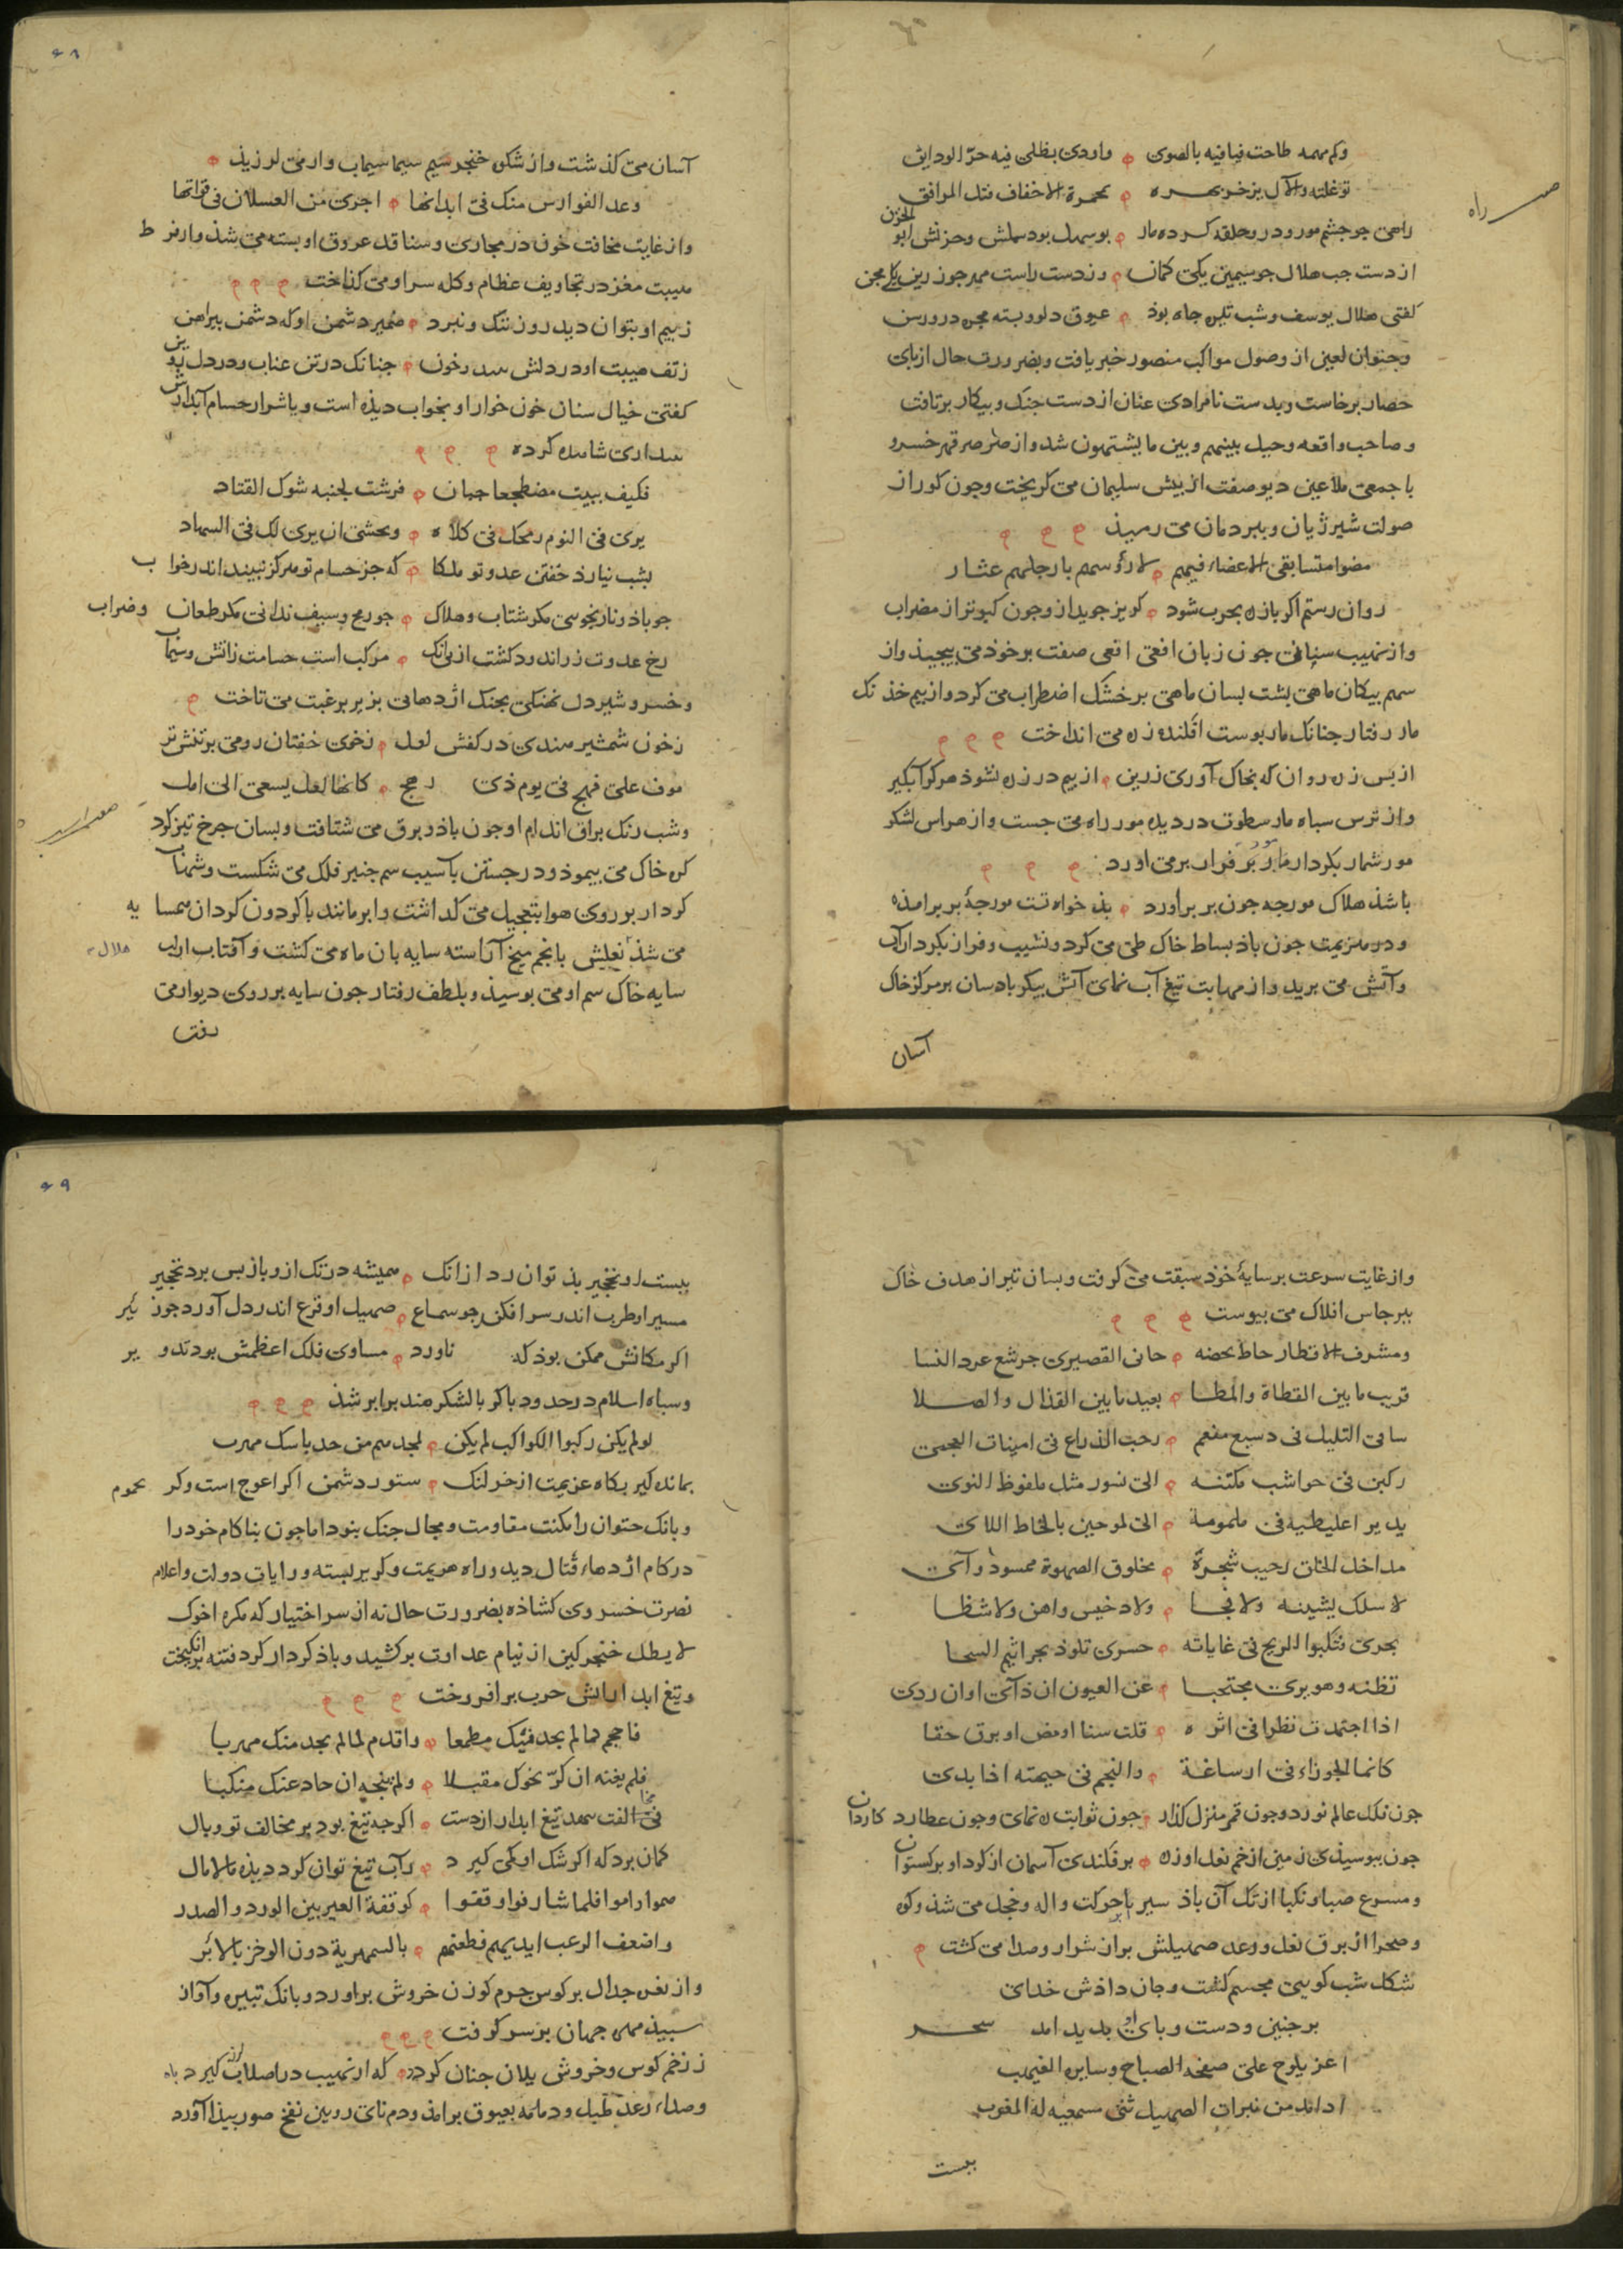 وکم مهمه طاحت فیافیه بالصوی وادی یظلی فیه حر الودایق
توغلته والآل یزخر بهره بحمرة الاخفاف فتل المرافق
راه
راهی جو جشم مور و درو حلقه کرده مار بوسهل بود سهلش و حزنش ابو الحزن
از دست جب هلال جو سیمین یکی کمان وز دست راست جون زرین یکی مجن
کفتی هلال یوسف و شب تیره جاه بوذ عیوق دلو و بسته مجره درو رسن
و جتوان لعین از وصول مواکب منصور خبر یافت و بضرورت حال از بای
حصار برخاست و بدست نامرادی عنان از دست جنک و بیکار برتافت
و صاحب واقعه وحیل بینهم و بین ما یشتهون شد و از صرصر قهر خسرو
با جمعی ملاعین دیو صفت از بیش سلیمان می کریخت و جون کور از
صولت شیر ژیان و ببر دمان می رمیذ
مضوا متسابقی الاعضاء فیهم لارؤسهم بارجلهم عثار
روان رستم اکر بازه بحرب شود کریز جوید از و جون کبوتر از مضراب
و از نهیب سنانی جون زبان افعی افعی صفت بر خوذ می بیجیذ و از
سهم بیکان ماهی بشت بسان ماهی بر خشک اضطراب می کرد و از بیم خذنک
مار رفتار جنانک مار بوست افکنده زره می انداخت
از بس زره روان که بخاک آوری زرین از بیم در زره نشوذ هرکز آبکیر
و از ترس سباه مار سطوت در دیده مور راه می جست و از هراس لشکر
مور شمار بکردار مار بر فرار بر می اورد
باشذ هلاک مورجه جون بر براورد بذ خواه تست مورجۀ بر برامذه
و در هزیمت جون باذ بساط خاک طی می کرد و نشیب و فراز بکردار آب
و آتش می برید و از مهابت تیغ آب نمای آتش بیکر باد سان بر مرکز خاک
آسان
۶۸
آسان می کذشت و از شکوه خنجر سیم سیما سیماب وار می لرزیذ
وعد الفوارس منک فی ابدانها اجری من العسلان فی قواتها
و از غایت مخافت خون در مجاری و منافذ عروق او بسته می شذ و از فرط
هیبت مغز در تجاویف عظام و کله سر او می کذاخت
ز بیم او بتوان دید روز ننک و نبرد ضمیر دشمن او که دشمن بیراهن
ز تف هیبت او در دلش خون جنانک در تن عناب و در دل
کفتی خیال سنان خون خوار او بخواب دیذه است و با شرار حسام آبدارش
بیداری شاهده کرده
فکیف یبیت مضطجعا جبان فرشت لجنبه شوک القتاد
یری فی النوم رمحک فی کلاه و یخشی ان یری لک فی السهاد
بشب نیارد خفتن عدو تو ملکا که جز حسام تو هرکز نبیند اندر خواب
جو باذ و نار بجوسی مکر شتاب و هلاک جو رمح و سیف ندانی مکر طعان و ضراب
رخ عدوت زر اندود کشت از بی آنک مرکب است حسامت ز آتش و سیماب
و خسرو شیر دل نهنکی بجنک اژدهائی بزیر بر غبت می تاخت
ز خون شمشیر هندی در کفش لعل ز خوی خفتان رومی بر تنش تر
موف علی مهج فی یوم ذی رهج کانها لعل یسعی الی امل
و شب رنک براق اندام او جون باذ و برق می شتافت و بسان جرخ تیز کرد
کره خاک می بیموذ و در جستن باسیب سم جنبر فلک می شکست و شهاب
کردار بر روی هوا بتعجیل می کذاشت و ابر مانند با کردون کردان همسایه
می شذ نعلش بانجم میخ آراسته سایه بان ماه می کشت و آفتاب ازان
هلال
سایه خاک سم او می بوسیذ و بلطف رفتار جون سایه بر روی دیوار می
رفت
و از غایت سرعت بر سایۀ خوذ سبقت می کرفت و بسان تیر از هدف خاک
ببرجاس افلاک می بیوست
ومشرف الاقطار خاظ نحضه حانی القصیری جرشع عرد النسا
قریب ما بین القطاة والمطا بعید ما بین القذال والصلا
سامی التلیل فی دسیع مفعم رحب الذراع فی امینات العجی
رکبن فی حواشب مکتنه الی نسور مثل ملفوظ النوی
یدیر اعلیطیه فی ملمومة الی لموحین بالحاظ اللای
مداخل الخلق رحیب شجره مخلولق الصهوة ممسود وآی
لا سکک یشینه ولا فجا ولا دخیس واهن ولا شظا
یجری فتکبوا الریح فی غایاته حسری تلوذ بجراثیم السحا
تظنه وهو یری محتجبا عن العیون ان ذآی او ان ردی
اذا اجتهدت نظرا فی اثره قلت سنا اومض او برق خفا
کانما الجوزاء فی ارساغه والنجم فی جبهته اذا بدی
جون فلک عالم نورد و جون قمر منزل کذار جون ثوابت ره نمای و جون عطارد کاردان
جون ببوسیذی زمین از خم نعل او زره بر فکندی آسمان از کرد او برکستوان
و مسرع صبا و نکبا از تک آن باذ سیر با حرکت واله و خجل می شذ و کوه
و صحرا از برق نعل و رعد صهیلش بر از شرار و صدا می کشت
شکل شب کویی مجسم کشت و جان داذش خدای
بر جنین و دست و بای او بدید امد سحر
اغر یلوح علی صفحه الصباح وسایره الغیهب
اذ اند من نبرات الصهیل ثنی مسمعیه له المغرب
بیست
۶۹
بیست او نخجیر بذ توان رد از انک همیشه درنک ازو باز بس برد تخجیر
مسیر او طرب اندر سر افکن جو سماع صهیل او فزع اندر دل آورد جون
اکر مکانش ممکن بوذ که ناورد مساوی فلک اعظمش بود تدویر
و سباه اسلام در حدود باکر با لشکر هند برابر شذ
لو لم یکن رکبوا الکواکب لم یکن لمجدهم من حد باسک مهرب
بمانده کیر بکاه عزیمت از خر لنک ستور دشمن اکر اعوج است و کر یحموم
و بانک جتوان را مکنت مقاومت و مجال جنک بنود اما جون بناکام خود را
در کام اژدهاء قتال دید و راه هزیمت و کریز بسته و رایات دولت و اعلام
نصرت خسروی کشاذه بضرورت حال نه از سر اختیار که مکره اخوک
لا بطل خنجر کین از نیام عداوت برکشید و باذ کردار کرد فتنه برانکیخت
و تیغ ابدار آتش حرب برافروخت
فاحجم لما لم یجد فیک مطمعا واقدم لما لم یجد منک مهربا
فلم یغنه ان کرّ نحوک مقبلا ولم ینجه ان حاد عنک منکبا
فی مخالفت نهد تیغ ابدار از دست اکر جه تیغ بود بر مخالف تو وبال
کمان برد که اکر شک او کمی کیرد در آب تیغ توان کرد دیذه مالامال
هموا راموا فلما شارفوا وقفوا کوقفة العیر بین الورد والصدر
واضعف الرعب ایدیهم فطعنهم بالسمهریة دون الوخز بالابر
و از نعره جدال بر کوس جرم کوزن خروش براورد و بانک تبیره و آواز
سبیذ مهره جهان بر سر کرفت
ز زخم کوس و خروش یلان جنان کردد که از نهیب در اصلاب کیرد
و صداء رعد طبل و دمامه بعیوق برامذ و دم نای رویین نفخ صور بیذا آورد